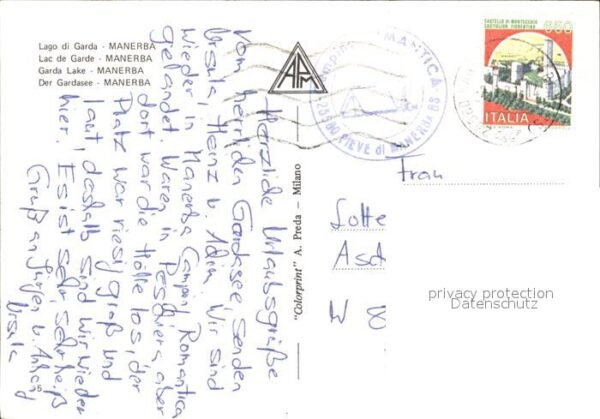 Lago di Garda - MANERBA
Lac de Garde - MANERBA
Garda Lake - MANERBA
Der Gardasee - MANERBA
APM
"Colorprint" A. Preda - Milano
Herzliche Urlaubsgrüße
vom herrlichen Gardasee senden
Ursula, Heinz u. Wir sind
wieder in Manerba Camping Romantica
gelandet. Waren in Peschiera aber
dort war die Hölle los, der
Platz war riesig groß und
laut, deshalb sind wir wieder
hier. Es ist sehr, sehr heiß
Gruß an Jürgen u.
Ursula
CAMPING ROMANTICA
PIEVE di MANERBA BS
CASTELLO DI MONTECCHIO
CASTIGLION FIORENTINO
650
ITALIA
Frau
Lotte
Asch
W 8
privacy protection
Datenschutz